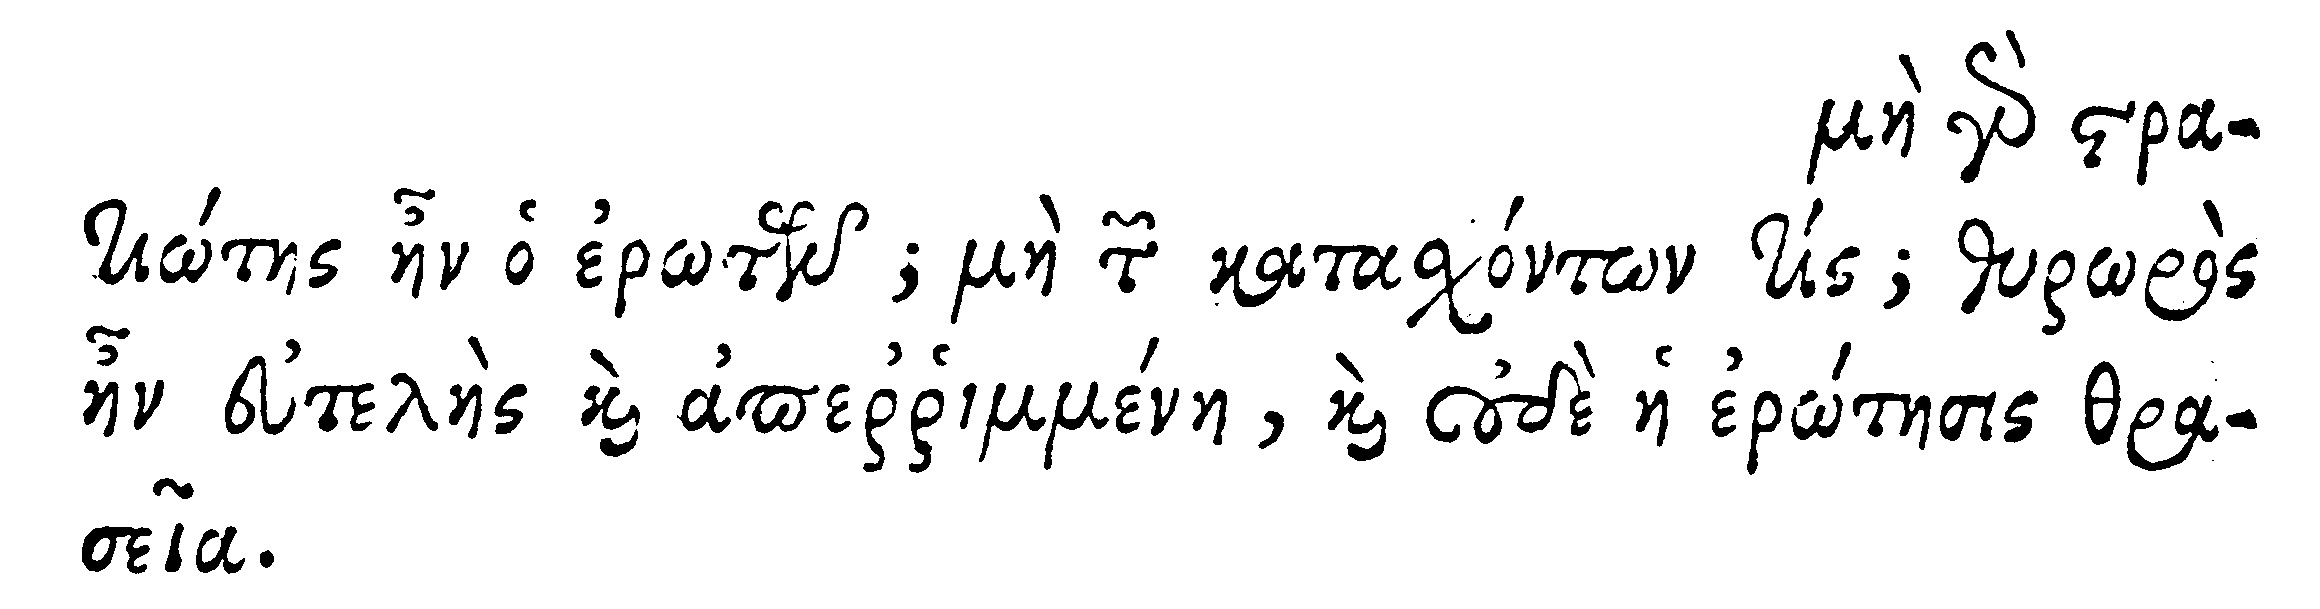 μὴ γὸ στρα-
τιώτης ἦν ὁ ἐρωτῶν; μὴ τῶν κατασχόντων τίς; θυρωρὸς
ἦν εὐτελὴς καὶ ἀπεῤῥιμμένη, καὶ οὐδὲ ἡ ἐρώτησις θρα-
σεῖα.